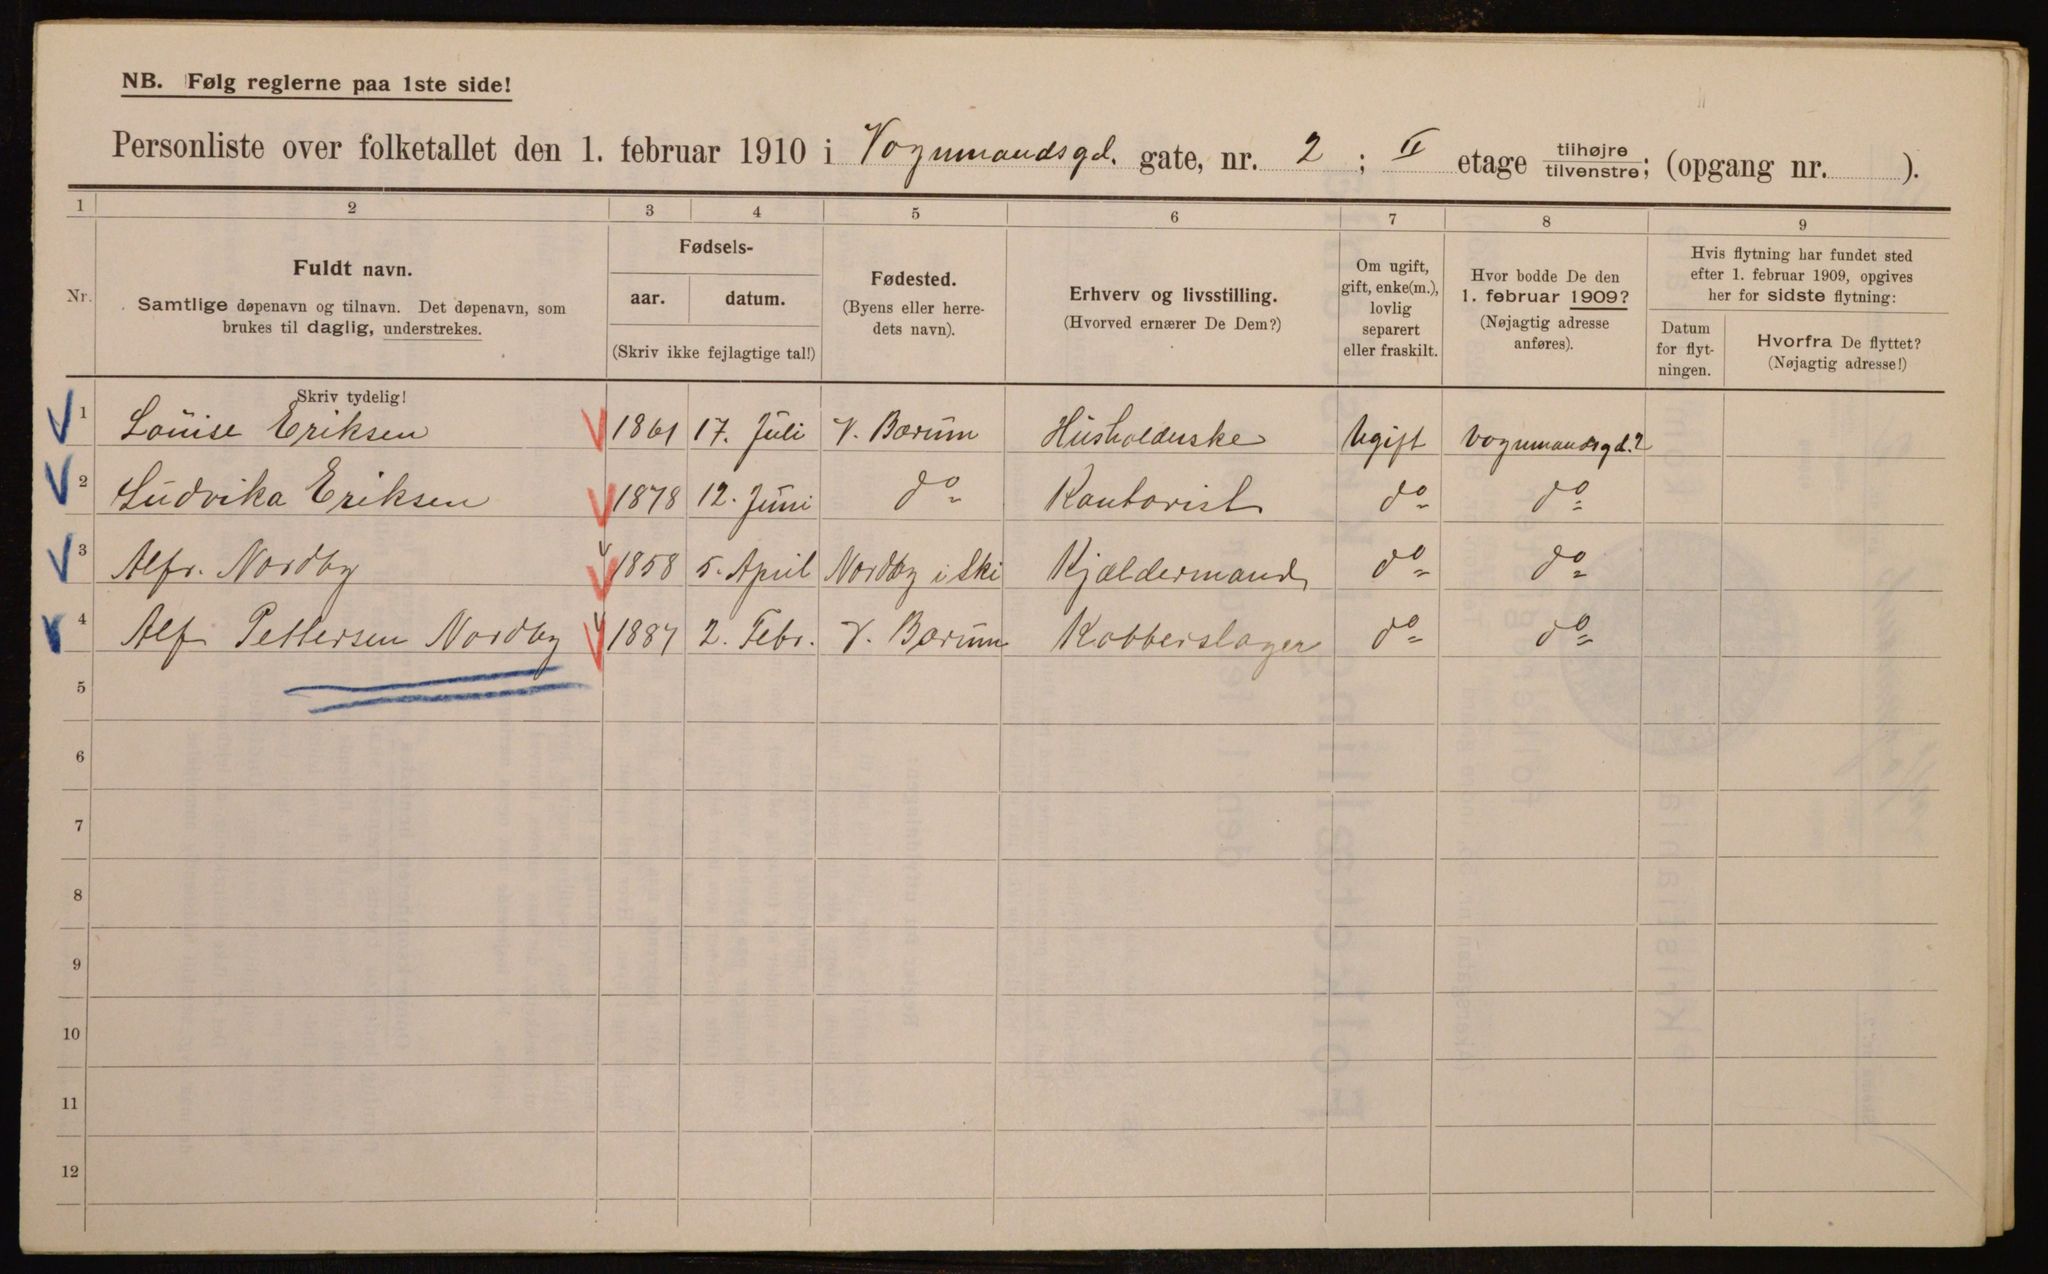 NB. Følg reglerne paa 1ste side!
Personliste over folketallet den 1. februar 1910 i Vognmandsgd. gate, nr. 2 ; II etage tilhøjre/tilvenstre; (opgang nr. ).
1 2 3 4 5 6 7 8 9
Nr.
Fuldt navn.
Samtlige døpenavn og tilnavn. Det døpenavn, som
brukes til daglig, understrekes.
Skriv tydelig!
Fødsels-
aar. datum.
(Skriv ikke fejlagtige tal!)
Fødested.
(Byens eller herre-
dets navn).
Erhverv og livsstilling.
(Hvorved ernærer De Dem?)
Om ugift,
gift, enke(m.),
lovlig
separert
eller fraskilt.
Hvor bodde De den
1. februar 1909?
(Nøjagtig adresse
anføres).
Hvis flytning har fundet sted
efter 1. februar 1909, opgives
her for sidste flytning:
Datum
for flyt-
ningen.
Hvorfra De flyttet?
(Nøjagtig adresse!)
1 Louise Eriksen 1861 17. Juli V. Bærum Husholderske Ugift Vognmandsgd. 2
2 Ludvika Eriksen 1878 12. Juni do Kontorist do do
3 Alfr. Nordby 1858 5. April Nordby i Ski Kjældermand do do
4 Alf Pettersen Nordby 1887 2. Febr. V. Bærum Kobberslager do do
5
6
7
8
9
10
11
12